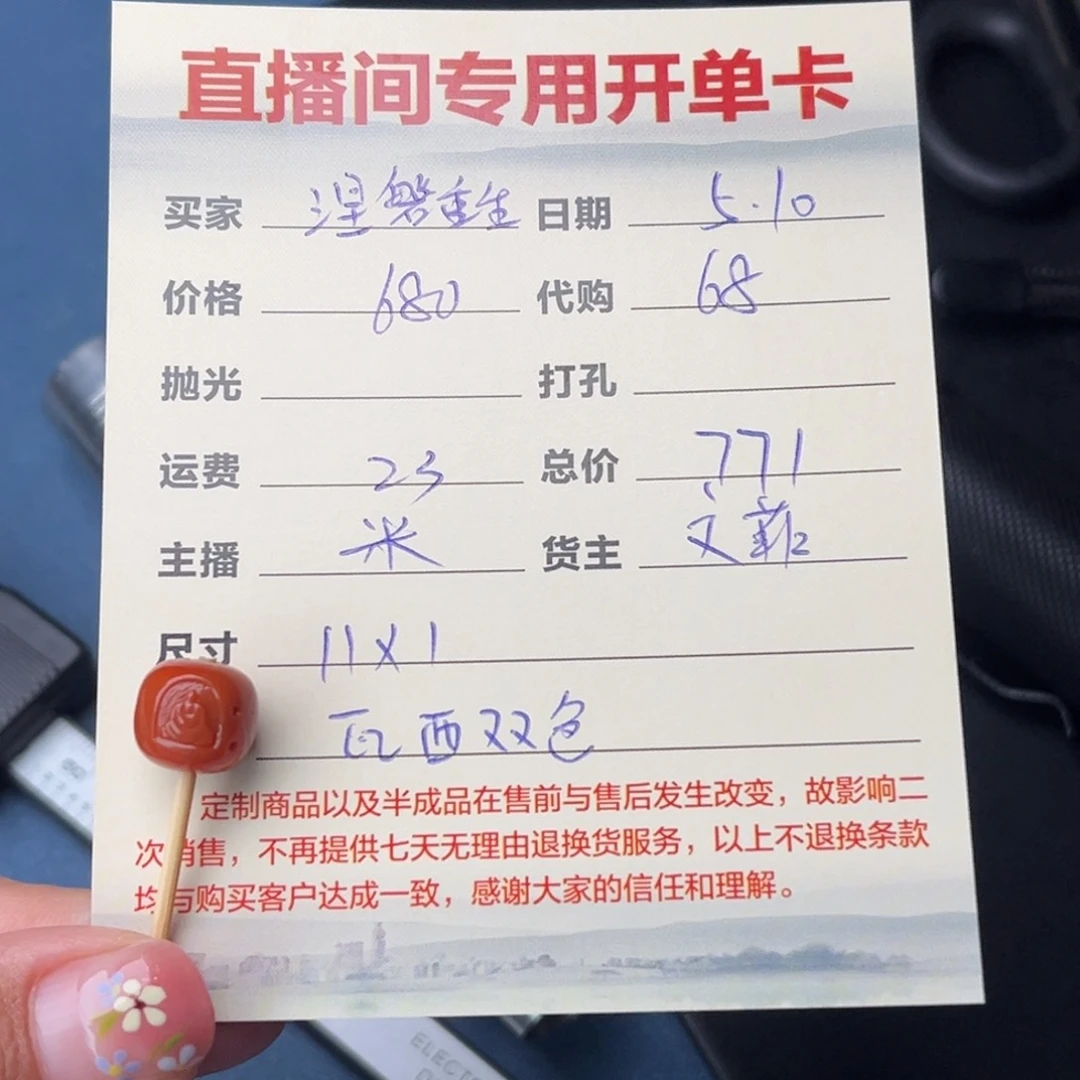 直播间专用开单卡
买家 涅磐重生 日期 5.10
价格 680 代购 68
抛光 打孔
运费 23 总价 771
主播 米 货主 文菲
尺寸 11X1
瓦西双色
定制商品以及半成品在售前与售后发生改变，故影响二
次销售，不再提供七天无理由退换货服务，以上不退换条款
均与购买客户达成一致，感谢大家的信任和理解。
ELEC